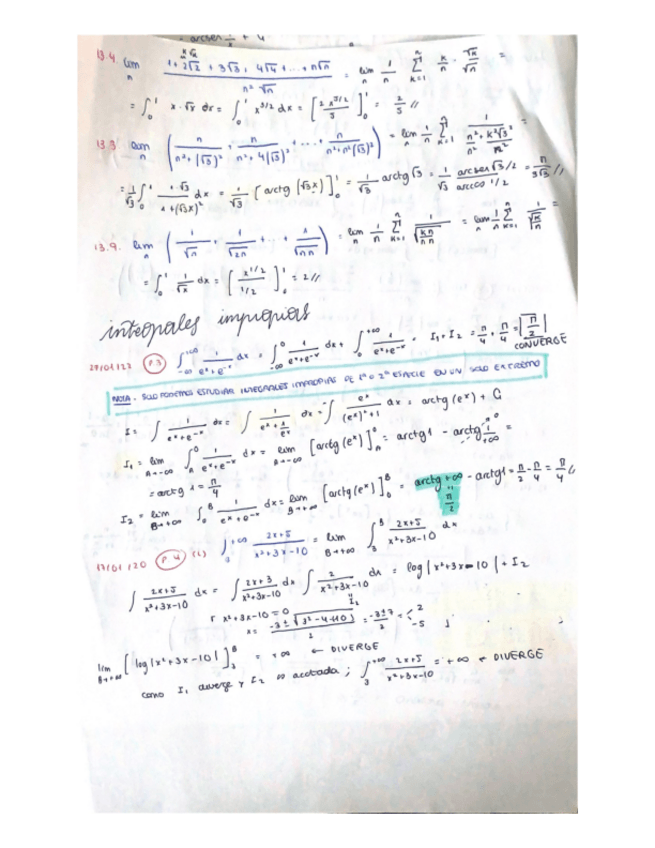 13.4. lim n (1+2√2 + 3√3 + 4√4 + ... + n√n) / (n²√n) = lim n 1/n ∑ k=1 n k/n · √k/√n =
= ∫₀¹ x·√x dx = ∫₀¹ x^(3/2) dx = [2x^(5/2)/5]₀¹ = 2/5 //
13.3 lim n (n/(n²+(√3)²) + n/(n²+4(√3)²) + ... + n/(n²+n²(√3)²)) = lim n 1/n ∑ k=1 n
= 1/√3 ∫₀¹ 1·√3/(1+(√3x)²) dx = 1/√3 [arctg (√3x)]₀¹ = 1/√3 arctg √3 = 1/√3 arcsen √3/2 / arccos 1/2 = π/3√3 //
13.9. lim n (1/√n + 1/√2n + ... + 1/√nn) = lim n 1/n ∑ k=1 n = lim n 1/n ∑ k=1 n 1/√(k/n) =
= ∫₀¹ 1/√x dx = [x^(1/2)/(1/2)]₀¹ = 2 //
integrales impropias
27/01/22 P.3 ∫₋∞^+∞ 1/(eˣ+e⁻ˣ) dx = ∫₋∞⁰ 1/(eˣ+e⁻ˣ) dx + ∫₀^+∞ 1/(eˣ+e⁻ˣ) = I₁+I₂ = π/4 + π/4 = π/2 CONVERGE
NOTA - SOLO PODEMOS ESTUDIAR INTEGRALES IMPROPIAS DE 1ª O 2ª ESPECIE EN UN SOLO EXTREMO
I = ∫ 1/(eˣ+e⁻ˣ) = ∫ 1/(eˣ+1/eˣ) dx = ∫ eˣ/((eˣ)²+1) dx = arctg (eˣ) + C
I₁ = lim A→-∞ ∫_A⁰ 1/(eˣ+e⁻ˣ) dx = lim A→-∞ [arctg (eˣ)]_A⁰ = arctg 1 - arctg 1/+∞ =
= arctg 1 = π/4
I₂ = lim B→+∞ ∫₀^B 1/(eˣ+e⁻ˣ) dx = lim B→+∞ [arctg (eˣ)]₀^B = arctg +∞ - arctg 1 = π/2 - π/4 = π/4
π/2
17/01/20 P.4 ∫₃^+∞ (2x+5)/(x²+3x-10) = lim B→+∞ ∫₃^B (2x+5)/(x²+3x-10) dx
∫ (2x+5)/(x²+3x-10) dx = ∫ (2x+3)/(x²+3x-10) dx ∫ 2/(x²+3x-10) dx = log |x²+3x-10| + I₂
I₂
x²+3x-10 = 0
x = (-3±√(3²-4·10))/2 = (-3±7)/2 = < 2 -5 ;
lim B→+∞ [log |x²+3x-10|]₃^B = +∞ ← DIVERGE
como I₁ diverge y I₂ acotada ; ∫₃^+∞ (2x+5)/(x²+3x-10) = +∞ ← DIVERGE